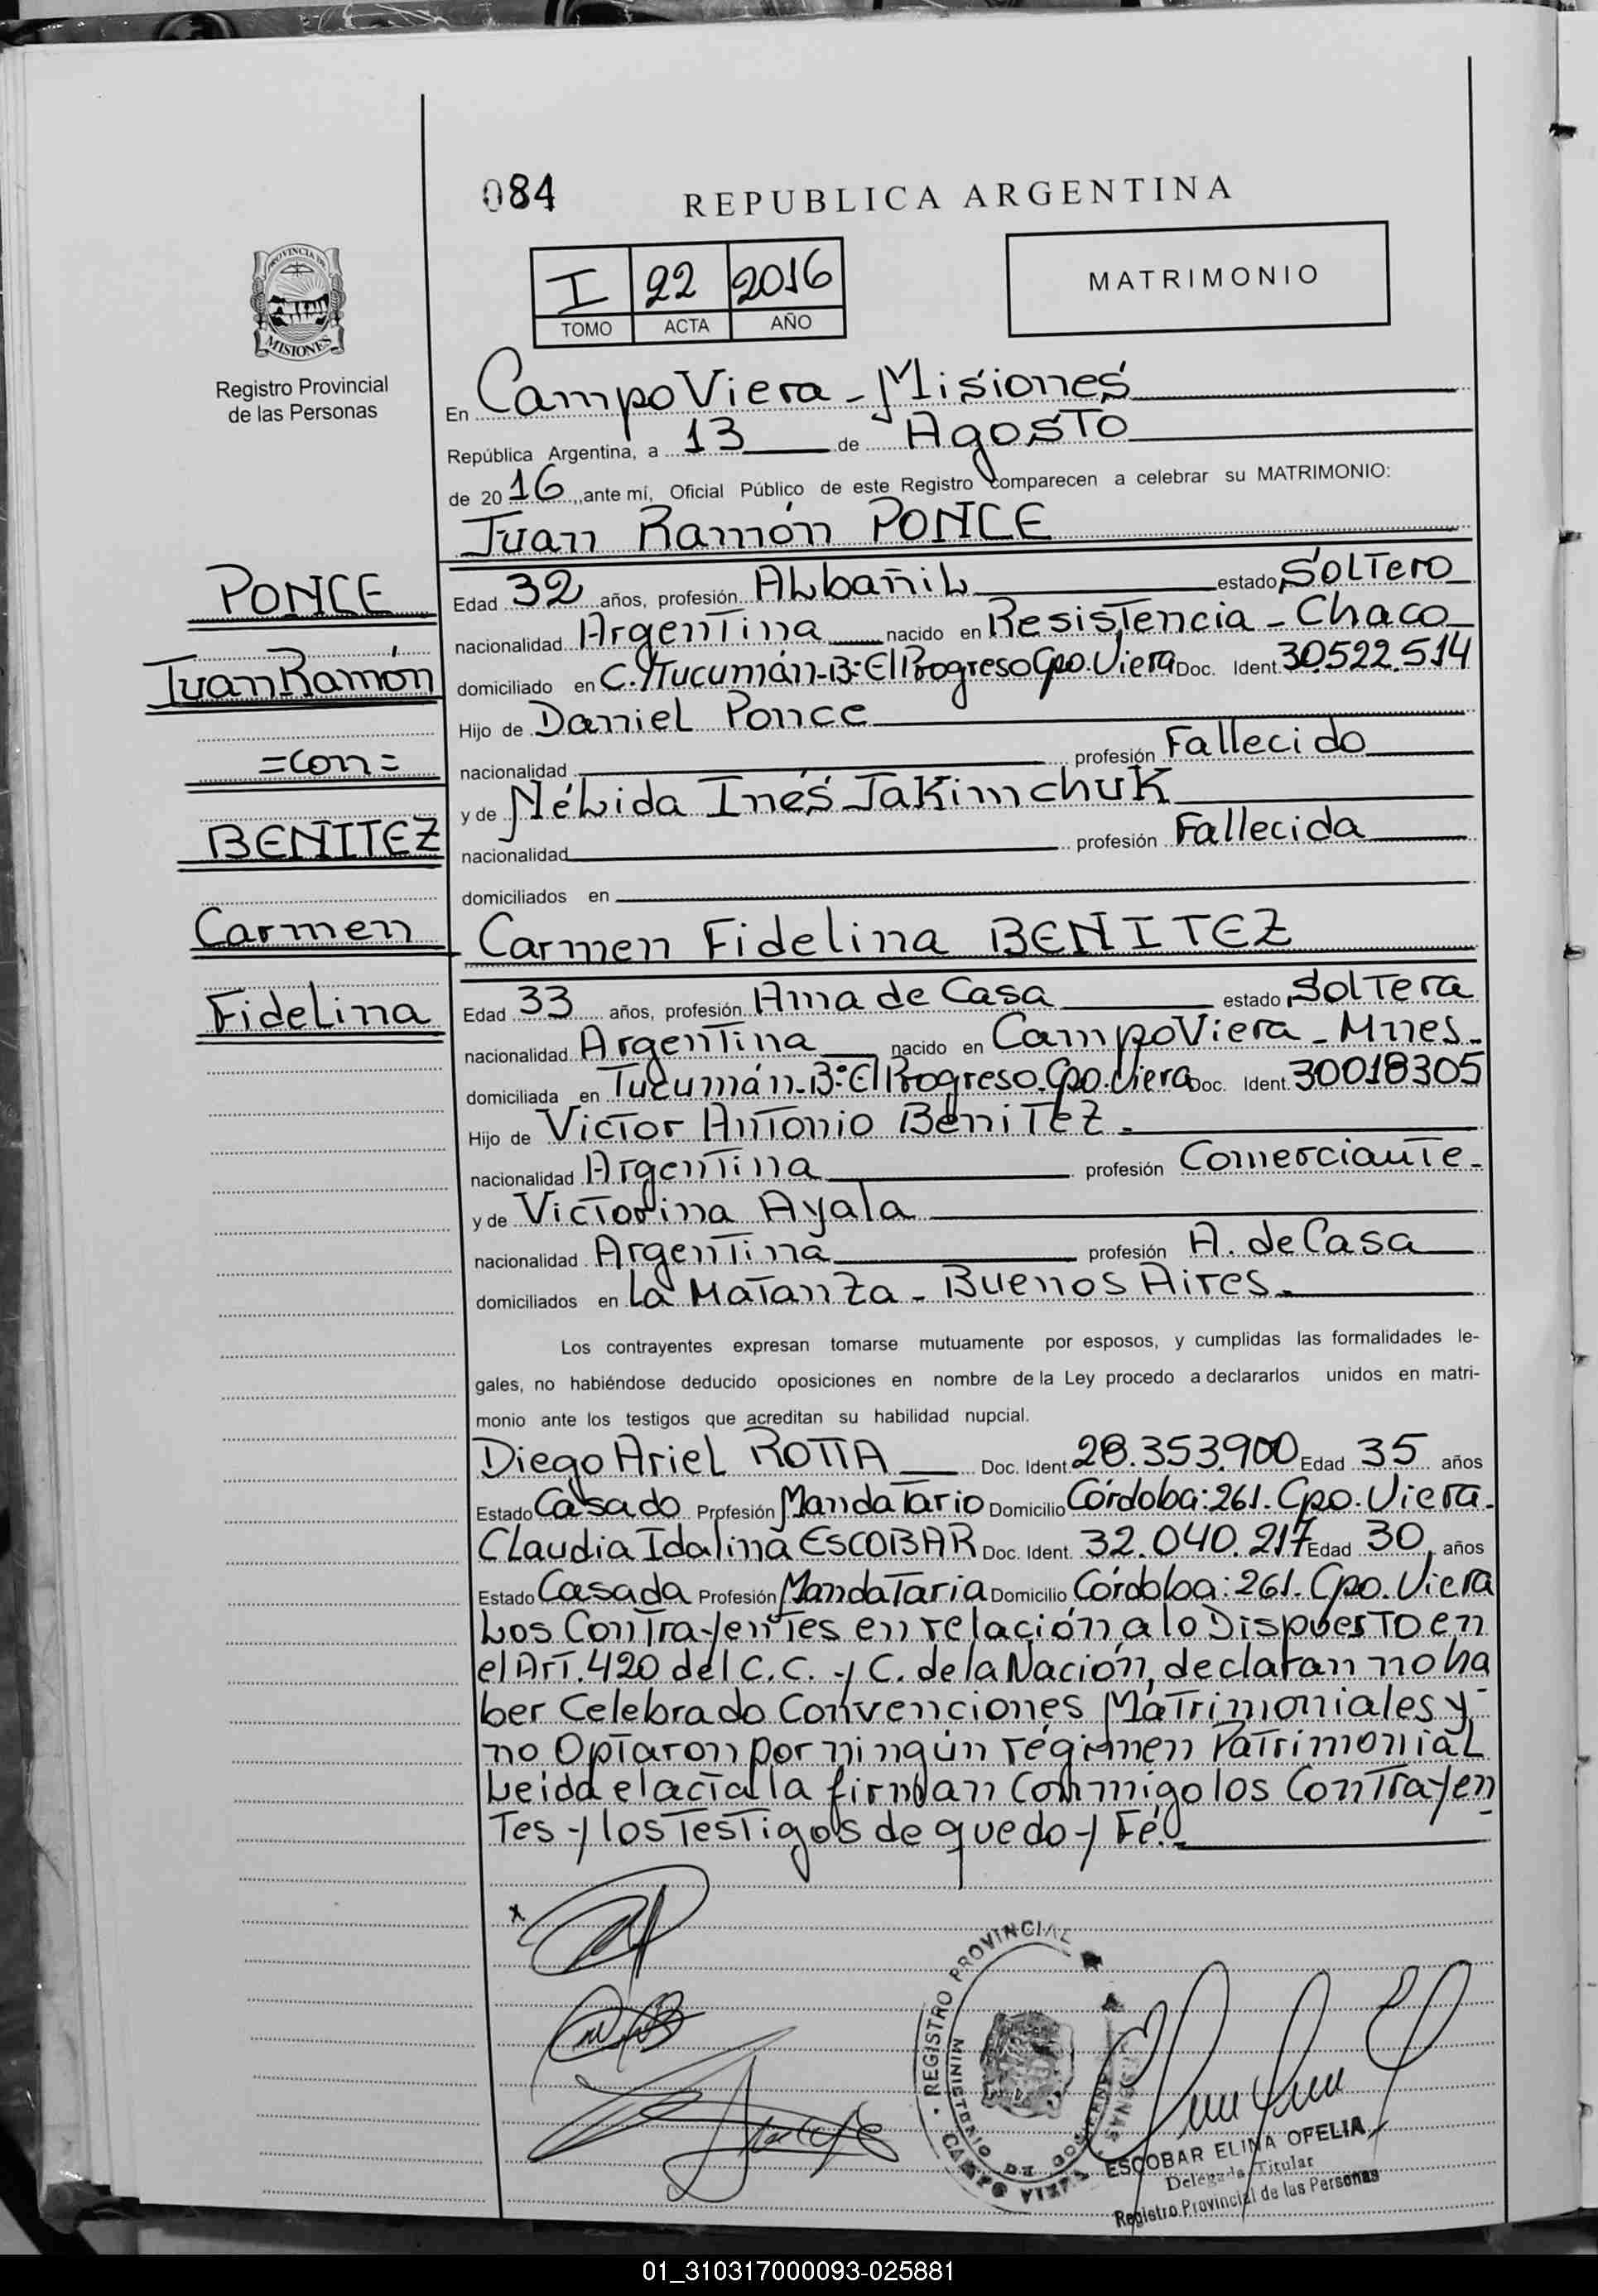 084
REPUBLICA ARGENTINA
I 22 2016
TOMO ACTA AÑO
MATRIMONIO
PROVINCIA DE
MISIONES
Registro Provincial
de las Personas
En Campo Viera - Misiones
República Argentina, a 13 de Agosto
de 2016, ante mí, Oficial Público de este Registro comparecen a celebrar su MATRIMONIO:
Juan Ramón PONCE
PONCE
Juan Ramón
=con=
BENITEZ
Carmen
Fidelina
Edad 32 años, profesión Albañil estado Soltero
nacionalidad Argentina nacido en Resistencia - Chaco
domiciliado en C. Tucumán-B° El Progreso Cpo. Viera Doc. Ident. 30.522.514
Hijo de Daniel Ponce
nacionalidad profesión Fallecido
y de Nélida Inés Jakimchuk
nacionalidad profesión Fallecida
domiciliados en
Carmen Fidelina BENITEZ
Edad 33 años, profesión Ama de Casa estado Soltera
nacionalidad Argentina nacido en Campo Viera - Mnes.
domiciliada en Tucumán-B° El Progreso. Cpo. Viera Doc. Ident. 30018305
Hijo de Victor Antonio Benitez.
nacionalidad Argentina profesión Comerciante.
y de Victorina Ayala
nacionalidad Argentina profesión A. de Casa
domiciliados en La Matanza - Buenos Aires.
Los contrayentes expresan tomarse mutuamente por esposos, y cumplidas las formalidades le-
gales, no habiéndose deducido oposiciones en nombre de la Ley procedo a declararlos unidos en matri-
monio ante los testigos que acreditan su habilidad nupcial.
Diego Ariel ROTTA Doc. Ident. 28.353.900 Edad 35 años
Estado Casado Profesión Mandatario Domicilio Córdoba: 261. Cpo. Viera.
Claudia Idalina ESCOBAR Doc. Ident. 32.040.217 Edad 30 años
Estado Casada Profesión Mandataria Domicilio Córdoba: 261. Cpo. Viera
Los Contrayentes en relación a lo Dispuesto en
el Art. 420 del C. C. y C. de la Nación, declaran no ha
ber Celebrado Convenciones Matrimoniales y
no Optaron por ningún régimen Patrimonial
Leida el acta la firman conmigo los Contrayen
tes y los Testigos de que doy Fé.
REGISTRO PROVINCIAL
MINISTERIO DE GOBIERNO
CAMPO VIERA
ESCOBAR ELINA OFELIA
Delegada Titular
Registro Provincial de las Personas
01_310317000093-025881